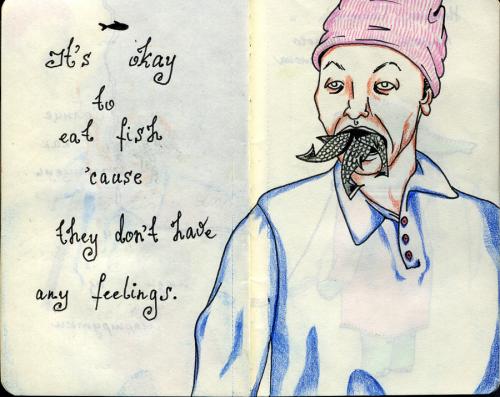 It's okay
to
eat fish
'cause
they don't have
any feelings.